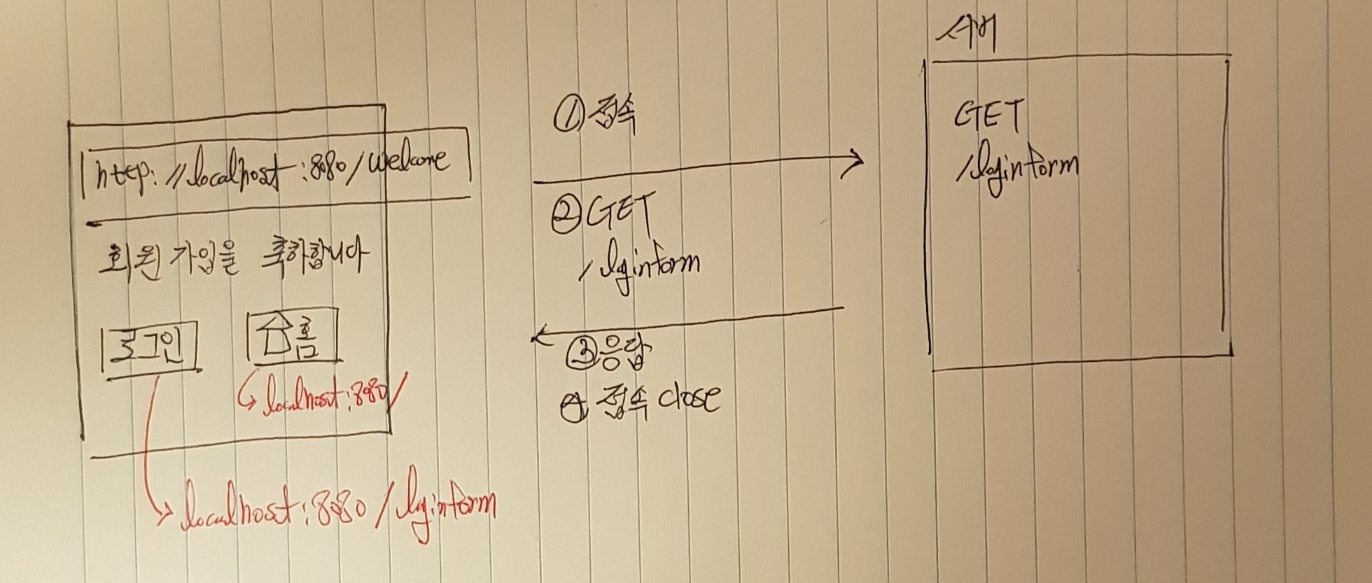 http://localhost:8080/welcome
회원 가입을 축하합니다
로그인
홈
localhost:8080/
localhost:8080/loginform
① 접속
② GET
/loginform
③ 응답
④ 접속 close
서버
GET
/loginform